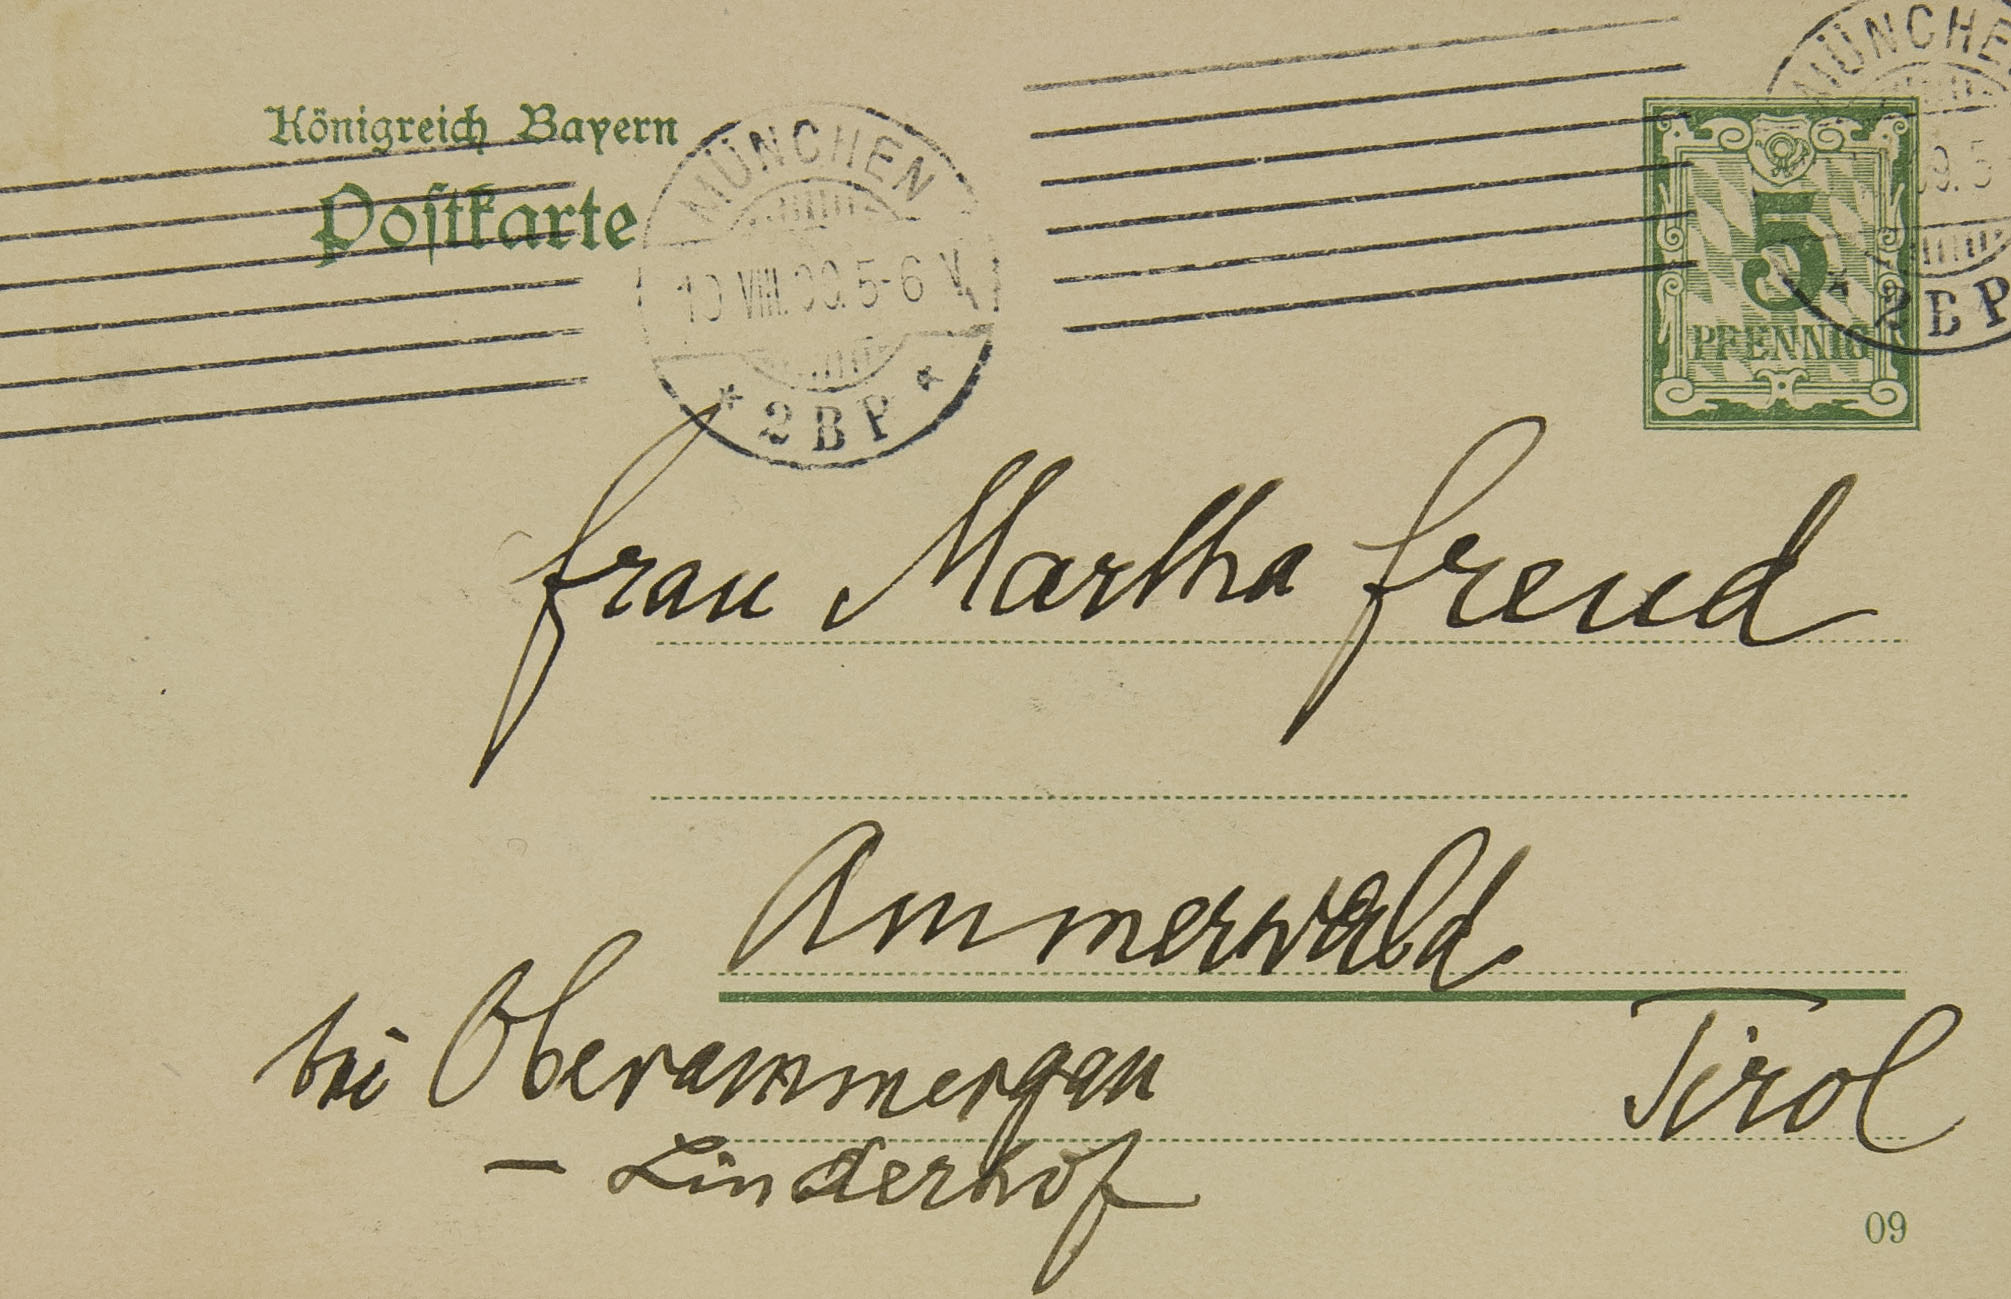 Königreich Bayern
Postkarte
MÜNCHEN
10 VIII. 09. 5-6 V.
* 2 B P *
MÜNCHEN
09. 5
* 2 B P
5
PFENNIG
Frau Martha Freud
Ammerwald
bei Oberammergau
Tirol
– Linderhof
09